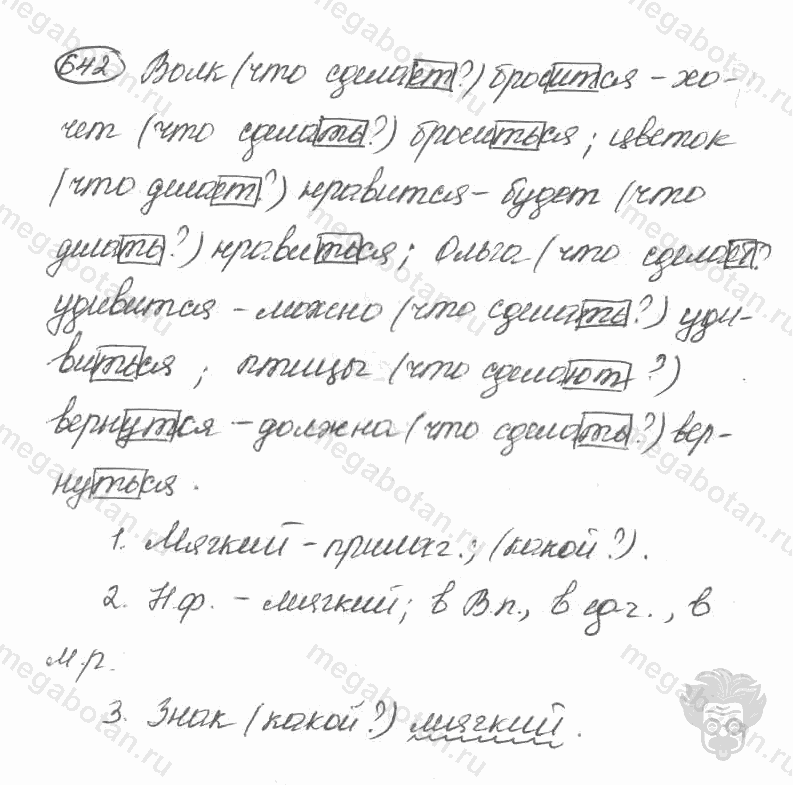 642 Волк (что сделает?) бросится - хо-
чет (что сделать?) броситься; цветок
(что делает?) нравится - будет (что
делать?) нравиться; Ольга (что сделает?
удивится - можно (что сделать?) уди-
виться; птицы (что сделают?)
вернутся - должна (что сделать?) вер-
нуться.
1. Мягкий - прилаг.; (какой?).
2. Н.ф. - мягкий; в В.п., в ед.ч., в
м.р.
3. Знак (какой?) мягкий.